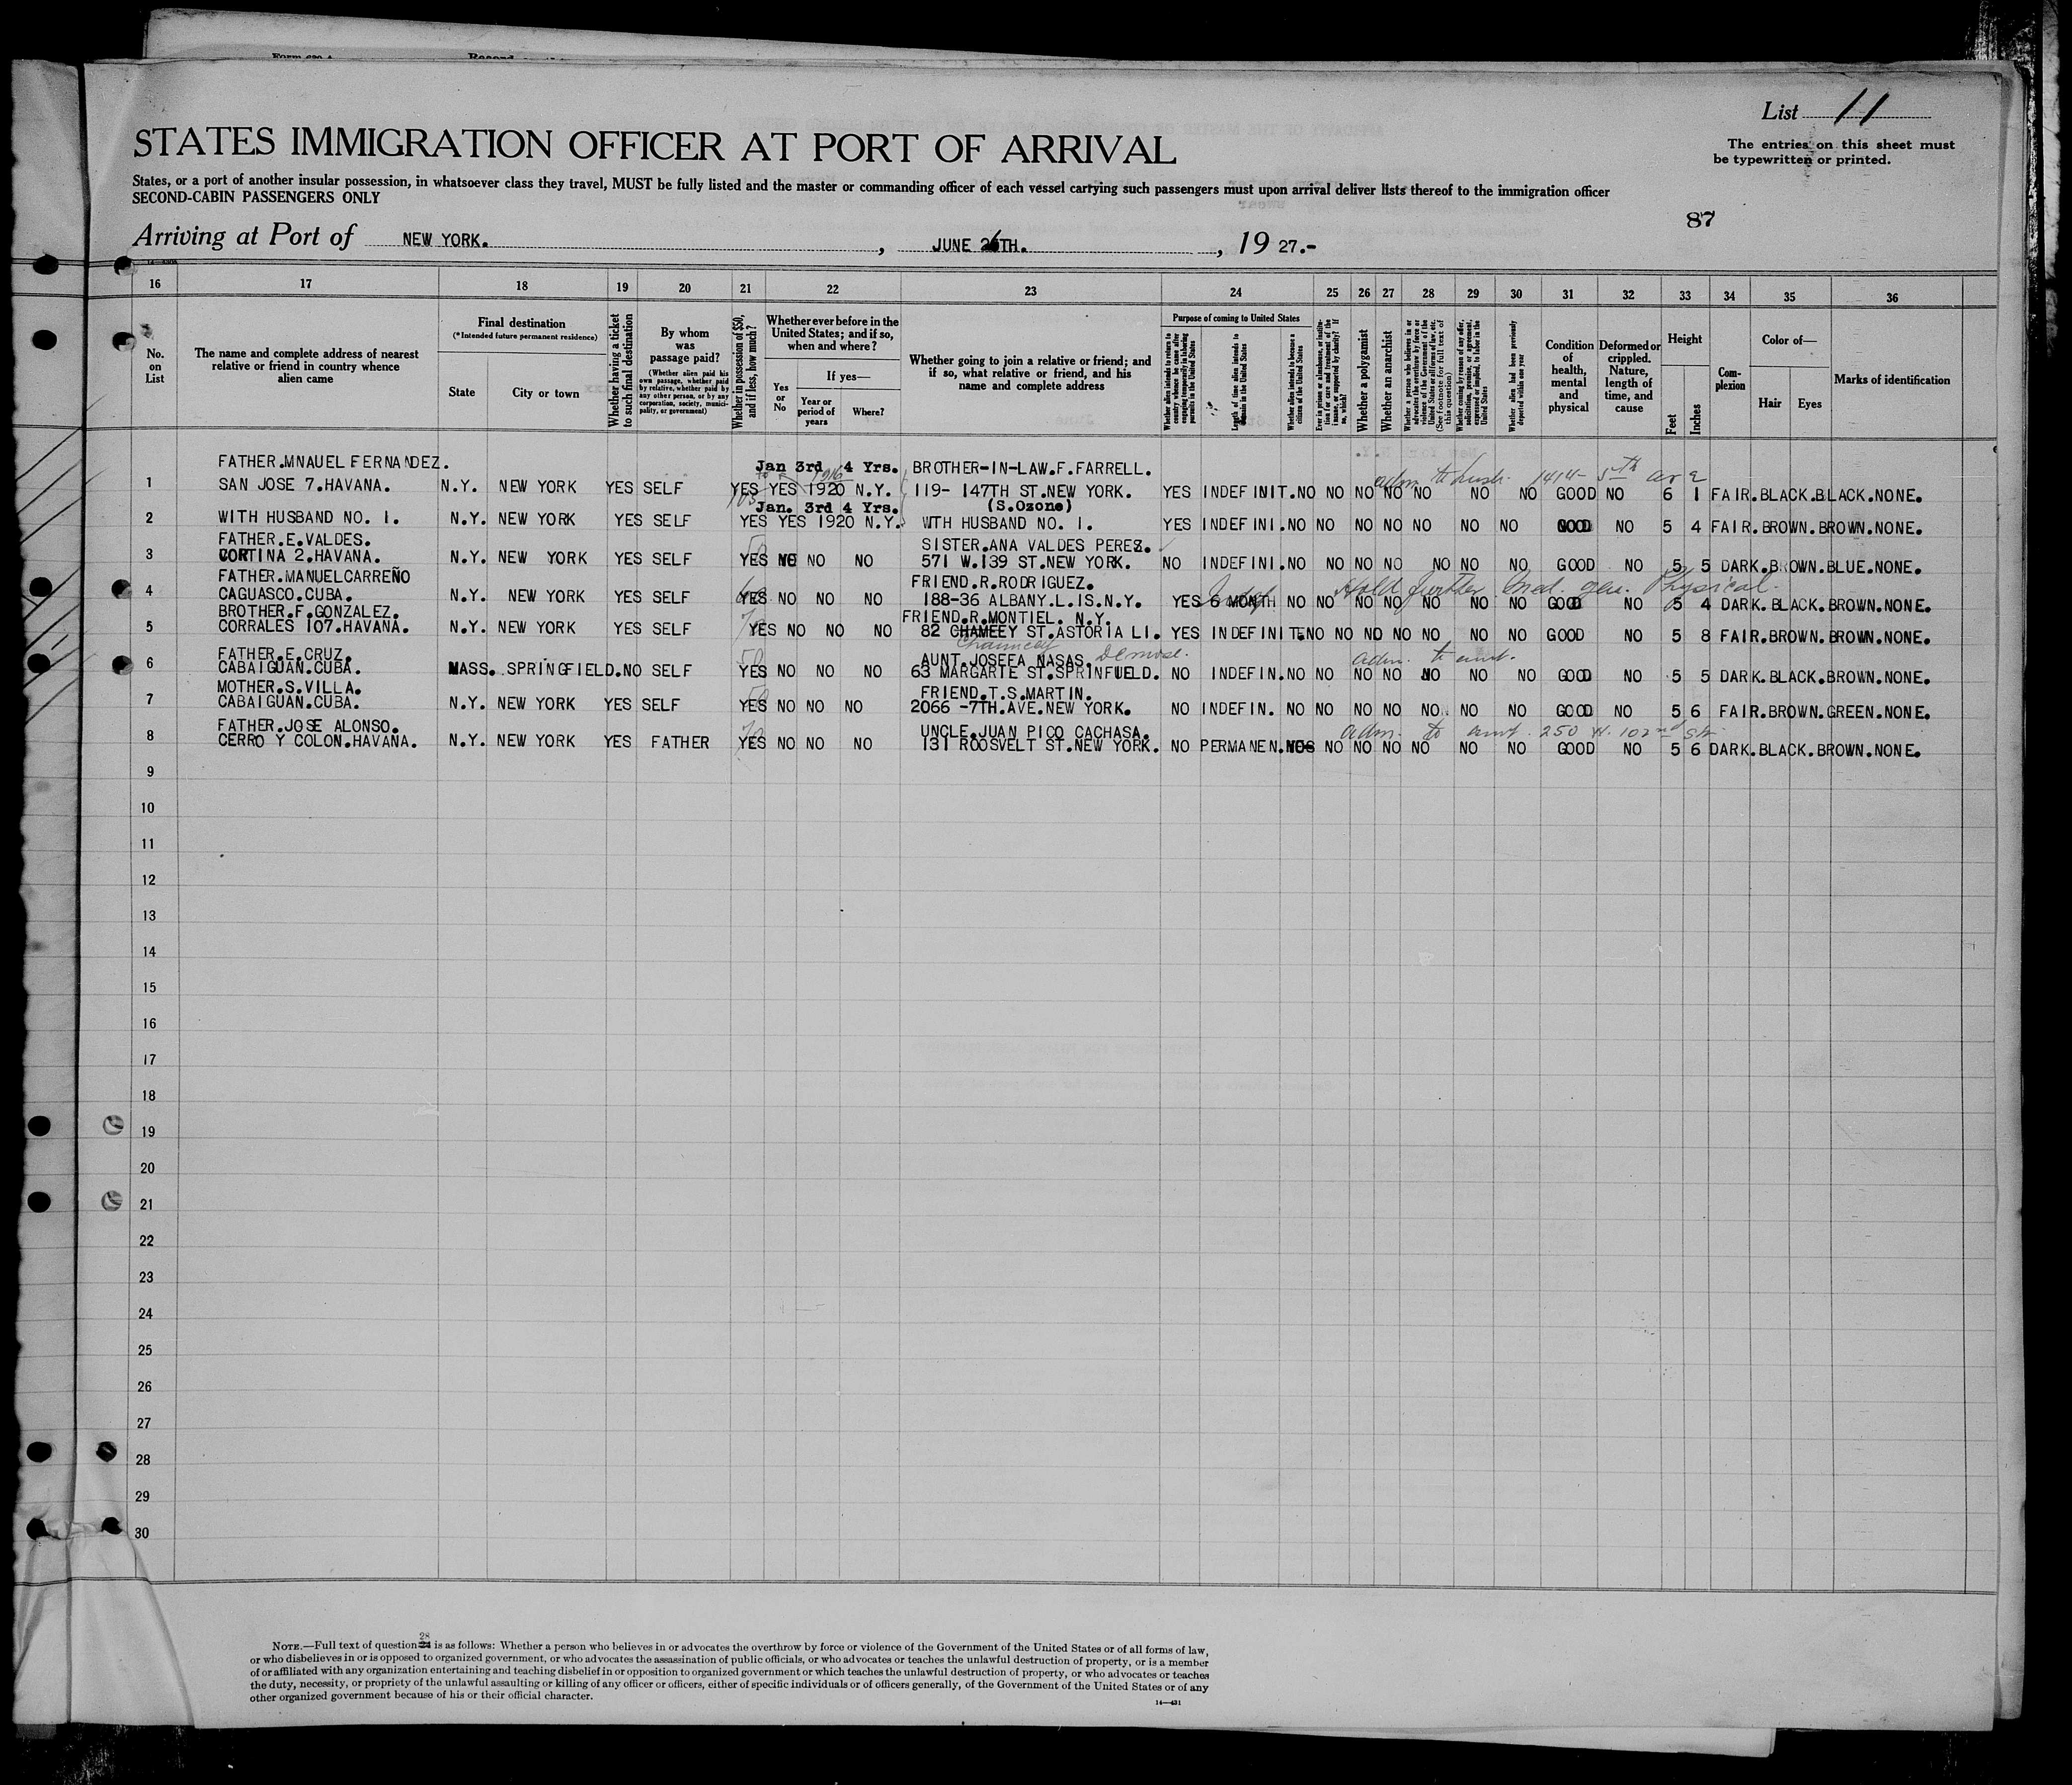 List 11
The entries on this sheet must
be typewritten or printed.
STATES IMMIGRATION OFFICER AT PORT OF ARRIVAL
States, or a port of another insular possession, in whatsoever class they travel, MUST be fully listed and the master or commanding officer of each vessel carrying such passengers must upon arrival deliver lists thereof to the immigration officer
SECOND-CABIN PASSENGERS ONLY
87
Arriving at Port of NEW YORK. , JUNE 26TH. , 19 27.-
16 17 18 19 20 21 22 23 24 25 26 27 28 29 30 31 32 33 34 35 36
No. on List
The name and complete address of nearest relative or friend in country whence alien came
Final destination
(*Intended future permanent residence)
State
City or town
Whether having a ticket to such final destination
By whom was passage paid?
(Whether alien paid his own passage, whether paid by relative, whether paid by any other person, or by any corporation, society, municipality, or government)
Whether in possession of $50, and if less, how much?
Whether ever before in the United States; and if so, when and where?
Yes or No
If yes—
Year or period of years
Where?
Whether going to join a relative or friend; and if so, what relative or friend, and his name and complete address
Purpose of coming to United States
Whether alien intends to return to country whence he came after engaging temporarily in laboring pursuits in the United States
Length of time alien intends to remain in the United States
Whether alien intends to become a citizen of the United States
Ever in prison or almshouse, or institution for care and treatment of the insane, or supported by charity? If so, which?
Whether a polygamist
Whether an anarchist
Whether a person who believes in or advocates the overthrow by force or violence of the Government of the United States or all forms of law, etc. (See footnote for full text of this question)
Whether coming by reason of any offer, solicitation, promise, or agreement, expressed or implied, to labor in the United States
Whether alien had been previously deported within one year
Condition of health, mental and physical
Deformed or crippled. Nature, length of time, and cause
Height
Feet
Inches
Complexion
Color of—
Hair
Eyes
Marks of identification
FATHER.MNAUEL FERNANDEZ. Jan 3rd 4 Yrs. BROTHER-IN-LAW.F.FARRELL. 1414- 5th ave
1 SAN JOSE 7.HAVANA. N.Y. NEW YORK YES SELF YES YES 1920 N.Y. 119- 147TH ST.NEW YORK. YES INDEFINIT.NO NO NO NO NO NO NO GOOD NO 6 1 FAIR.BLACK.BLACK.NONE.
Jan. 3rd 4 Yrs. (S.Ozone)
2 WITH HUSBAND NO. 1. N.Y. NEW YORK YES SELF YES YES 1920 N.Y. WTH HUSBAND NO. 1. YES INDEFINI.NO NO NO NO NO NO NO GOOD NO 5 4 FAIR.BROWN.BROWN.NONE.
FATHER.E.VALDES. SISTER.ANA VALDES PEREZ.
3 CORTINA 2.HAVANA. N.Y. NEW YORK YES SELF YES NO NO NO 571 W.139 ST.NEW YORK. NO INDEFINI.NO NO NO NO NO NO NO GOOD NO 5 5 DARK.BROWN.BLUE.NONE.
FATHER.MANUELCARREÑO FRIEND.R.RODRIGUEZ. Hold further Med. gen. Physical.
4 CAGUASCO.CUBA. N.Y. NEW YORK YES SELF YES NO NO NO 188-36 ALBANY.L.IS.N.Y. YES 6 MONTH NO NO NO NO NO NO NO GOOD NO 5 4 DARK.BLACK.BROWN.NONE.
BROTHER.F.GONZALEZ. FRIEND.R.MONTIEL. N.Y.
5 CORRALES 107.HAVANA. N.Y. NEW YORK YES SELF YES NO NO NO 82 CHAMEEY ST.ASTORIA LI. YES INDEFINITENO NO NO NO NO NO NO GOOD NO 5 8 FAIR.BROWN.BROWN.NONE.
Chauncey
FATHER.E.CRUZ. AUNT.JOSEFA NASAS. adm. to aunt.
6 CABAIGUAN.CUBA. MASS. SPRINGFIELD.NO SELF YES NO NO NO 63 MARGARTE ST.SPRINFUELD. NO INDEFIN.NO NO NO NO NO NO NO GOOD NO 5 5 DARK.BLACK.BROWN.NONE.
MOTHER.S.VILLA. FRIEND.T.S.MARTIN.
7 CABAIGUAN.CUBA. N.Y. NEW YORK YES SELF YES NO NO NO 2066 -7TH.AVE.NEW YORK. NO INDEFIN. NO NO NO NO NO NO NO GOOD NO 5 6 FAIR.BROWN.GREEN.NONE.
FATHER.JOSE ALONSO. UNCLE.JUAN PICO CACHASA. adm. to aunt. 250 W. 102nd St.
8 CERRO Y COLON.HAVANA. N.Y. NEW YORK YES FATHER YES NO NO NO 131 ROOSVELT ST.NEW YORK. NO PERMANEN. NO NO NO NO NO NO GOOD NO 5 6 DARK.BLACK.BROWN.NONE.
9
10
11
12
13
14
15
16
17
18
19
20
21
22
23
24
25
26
27
28
29
30
NOTE.—Full text of question 28 is as follows: Whether a person who believes in or advocates the overthrow by force or violence of the Government of the United States or of all forms of law,
or who disbelieves in or is opposed to organized government, or who advocates the assassination of public officials, or who advocates or teaches the unlawful destruction of property, or is a member
of or affiliated with any organization entertaining and teaching disbelief in or opposition to organized government or which teaches the unlawful destruction of property, or who advocates or teaches
the duty, necessity, or propriety of the unlawful assaulting or killing of any officer or officers, either of specific individuals or of officers generally, of the Government of the United States or of any
other organized government because of his or their official character.
14—431